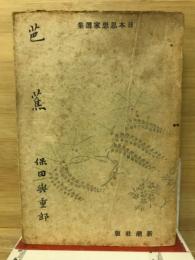 日本思想家選集
芭蕉
保田與重郎
新潮社版